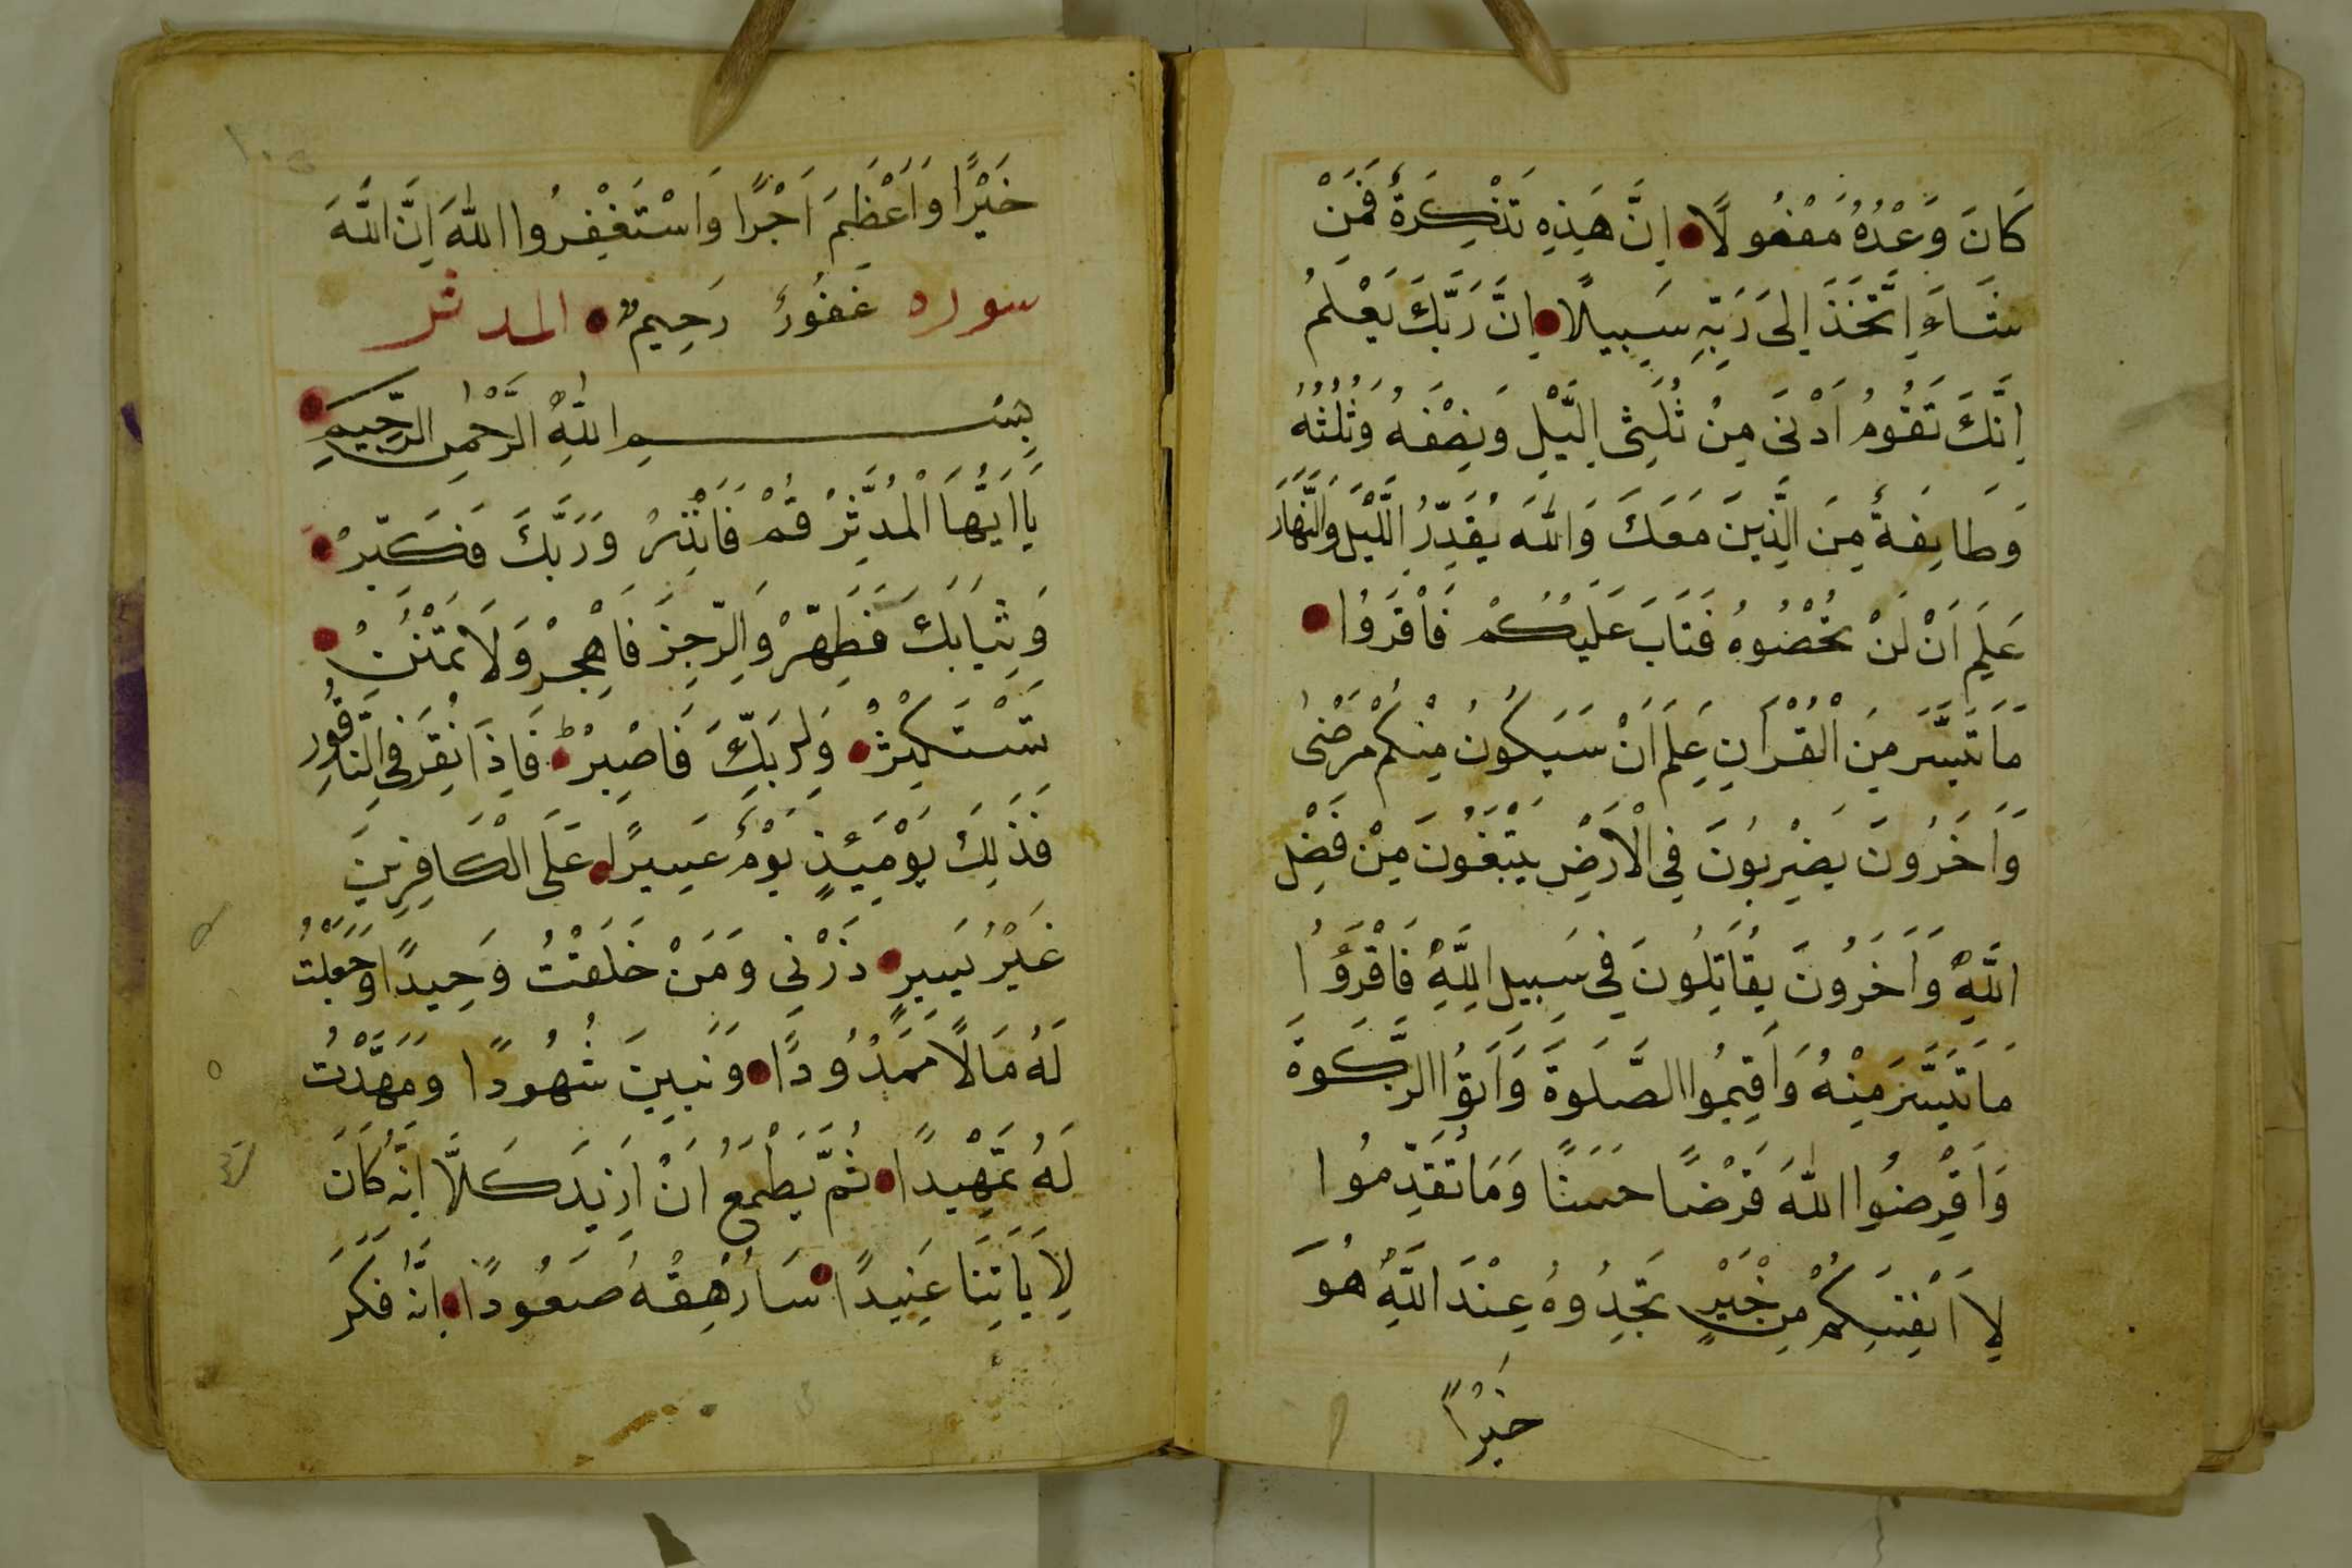 كَانَ وَعْدُهُ مَفْعُولًا اِنَّ هَذِهِ تَذْكِرَةٌ فَمَنْ
شَاءَ اِتَّخَذَ اِلَى رَبِّهِ سَبِيلًا اِنَّ رَبَّكَ يَعْلَمُ
اِنَّكَ تَقُومُ اَدْنَى مِنْ ثُلُثَيِ الَّيْلِ وَنِصْفَهُ وَثُلُثَهُ
وَطَايِفَةٌ مِنَ الَّذِينَ مَعَكَ وَاللهُ يُقَدِّرُ اللَّيْلَ وَالنَّهَارَ
عَلِمَ اَنْ لَنْ تُحْصُوهُ فَتَابَ عَلَيْكُمْ فَاقْرَوُا
مَاتَيَسَّرَ مِنَ الْقُرْاَنِ عَلِمَ اَنْ سَيَكُونُ مِنْكُمْ مَرْضَى
وَاَخَرُونَ يَضْرِبُونَ فِي الْاَرْضِ يَبْتَغُونَ مِنْ فَضْلِ
اللَّهِ وَاَخَرُونَ يُقَاتِلُونَ فِي سَبِيلِ اللَّهِ فَاقْرَؤُا
مَاتَيَسَّرَ مِنْهُ وَاَقِيمُوا الصَّلَوةَ وَاَتَوُا الزَّكَوةَ
وَاَقْرِضُوا اللهَ قَرْضًا حَسَنًا وَمَاتُقَدِّمُوا
لِاَنْفُسِكُمْ مِنْ خَيْرٍ تَجِدُوهُ عِنْدَ اللَّهِ هُوَ
خَيْرًا
خَيْرًا وَاَعْظَمَ اَجْرًا وَاسْتَغْفِرُوا اللهَ اِنَّ اللَّهَ
سوره غَفُورٌ رَحِيمٌ المدثر
بِسْمِ اللَّهِ الرَّحْمٰنِ الرَّحِيمِ
يَااَيُّهَا الْمُدَّثِّرُ قُمْ فَانْذِرْ وَرَبَّكَ فَكَبِّرْ
وَثِيَابَكَ فَطَهِّرْ وَالرِّجِزَ فَاهْجُرْ وَلَا تَمْنُنْ
تَسْتَكْثِرُ وَلِرَبِّكَ فَاصْبِرْ فَاِذَا نُقِرَ فِي النَّاقُورِ
فَذَلِكَ يَوْمَئِذٍ يَوْمٌ عَسِيرًا عَلَى الْكَافِرِينَ
غَيْرُ يَسِيرٍ ذَرْنِي وَمَنْ خَلَقْتُ وَحِيدًا وَجَعَلْتُ
لَهُ مَالًا مَمْدُودًا وَبَنِينَ شُهُودًا وَمَهَّدْتُ
لَهُ تَمْهِيدًا ثُمَّ يَطْمَعُ اَنْ اَزِيدَ كَلَّا اِنَّهُ كَانَ
لِاَيَاتِنَا عَنِيدًا سَاُرْهِقُهُ صَعُودًا اِنَّهُ فَكَّرَ